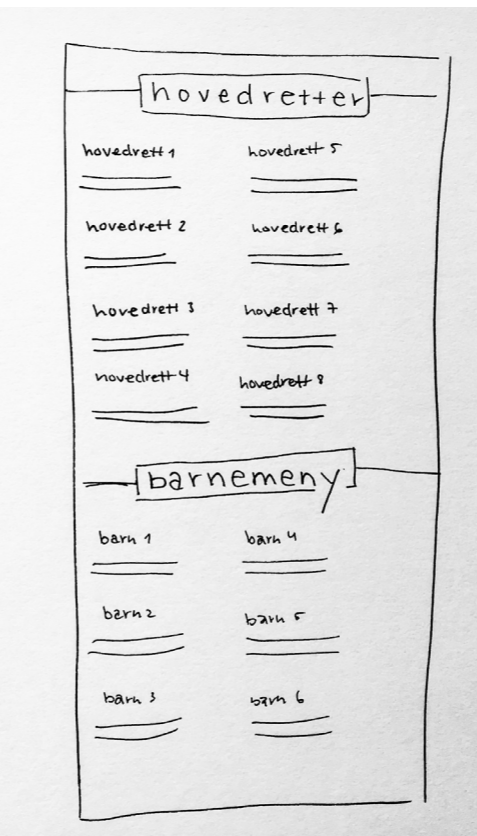 hovedretter
hovedrett 1
hovedrett 2
hovedrett 3
hovedrett 4
hovedrett 5
hovedrett 6
hovedrett 7
hovedrett 8
barnemeny
barn 1
barn 2
barn 3
barn 4
barn 5
barn 6